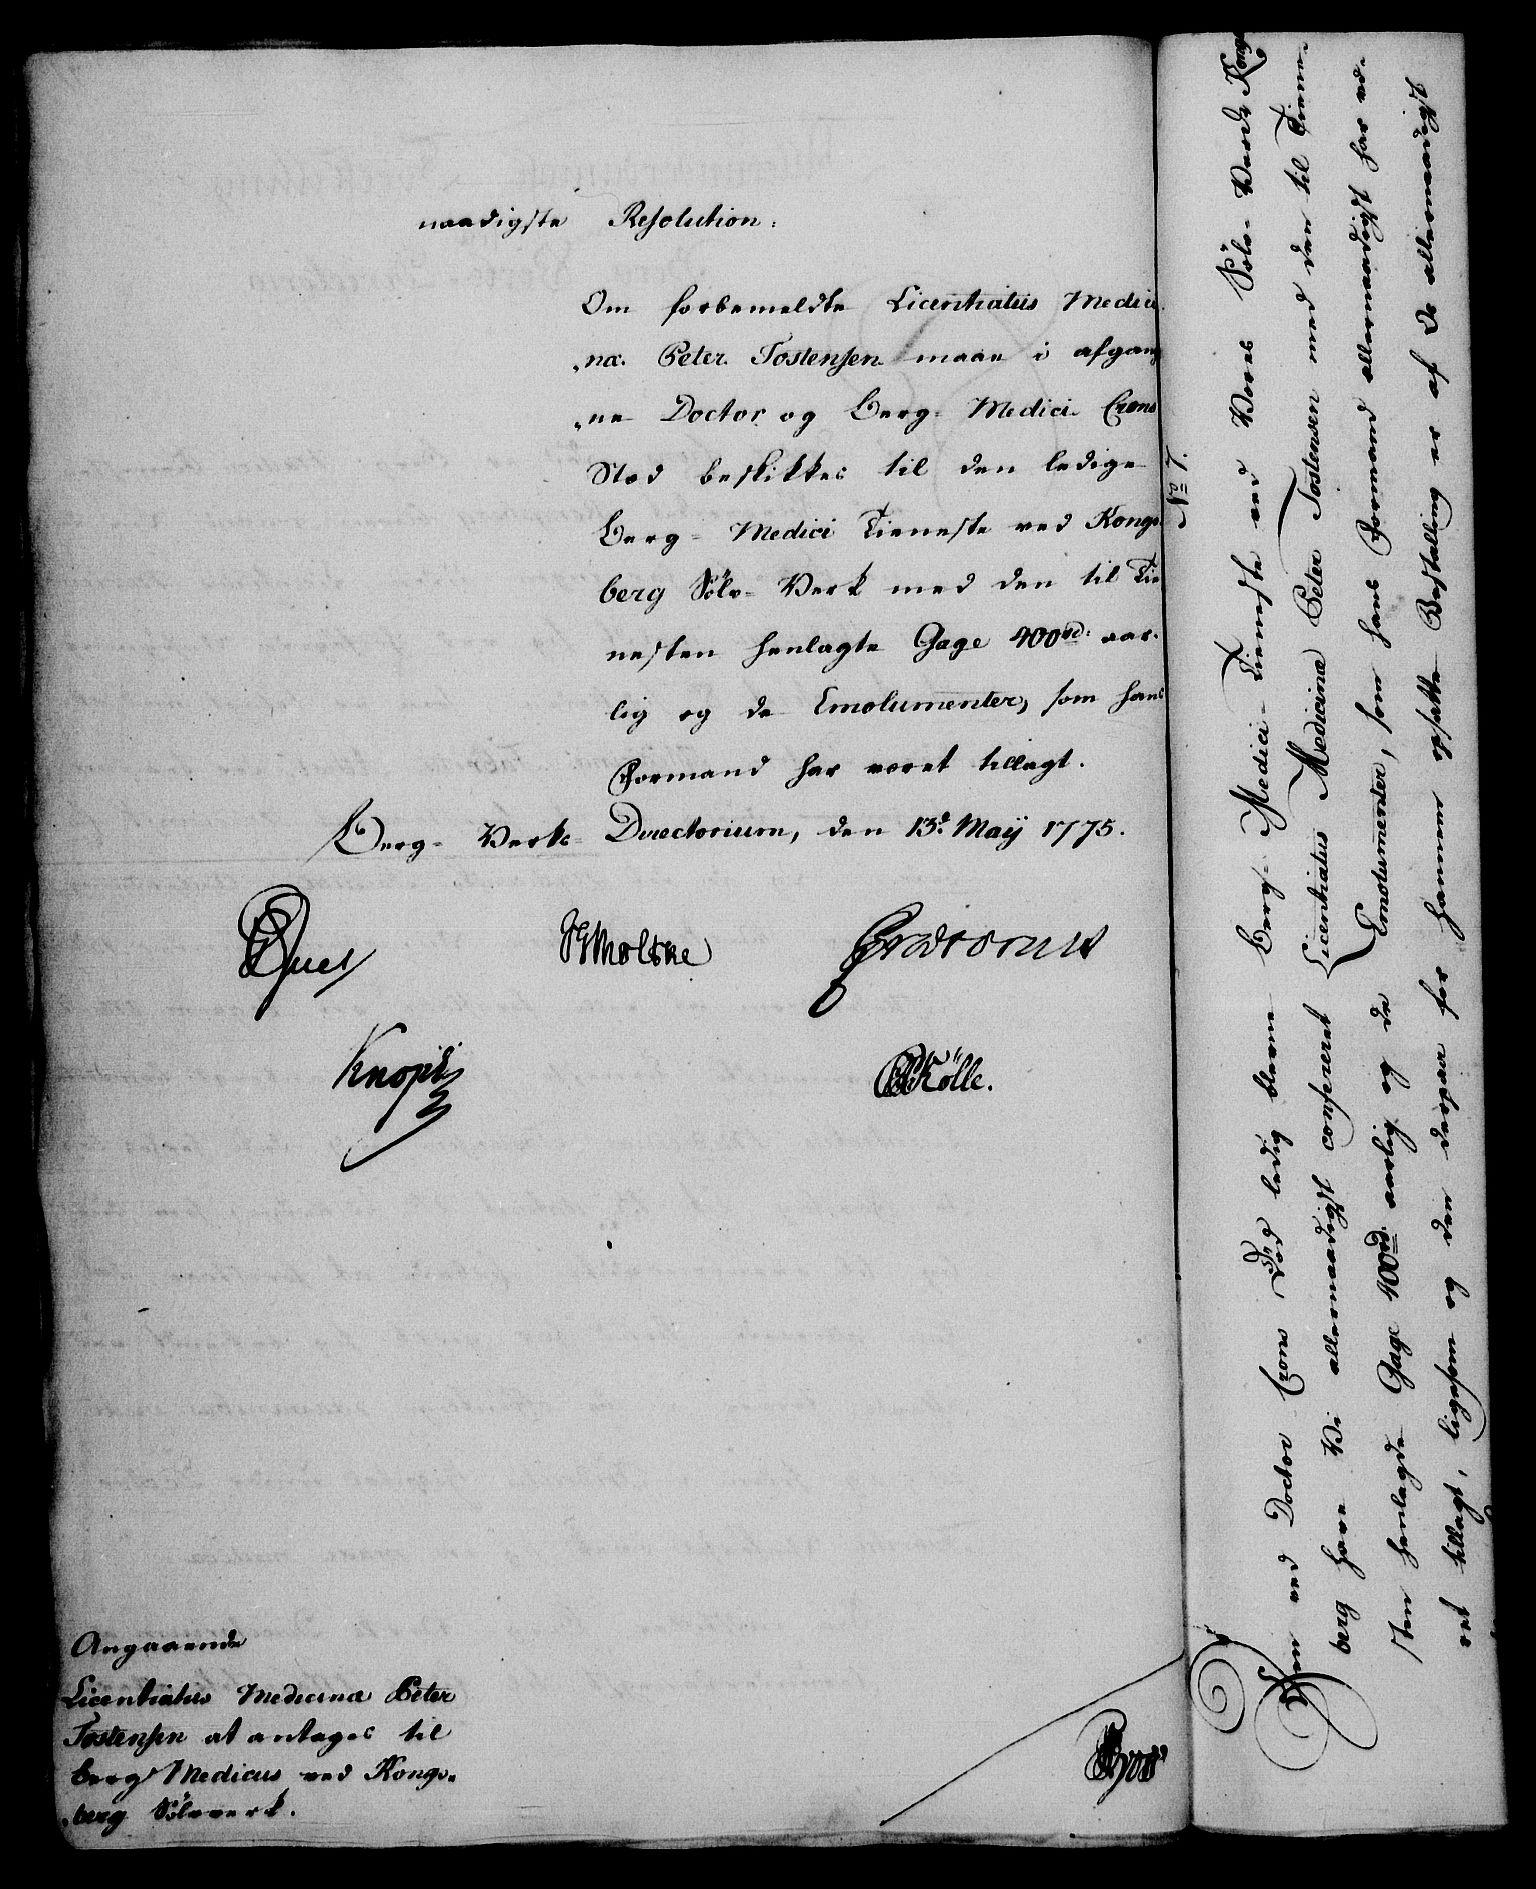 naadigste Resolution:
Om forbemeldte Licentiatus Medici
„næ Peter Tostensen maae i afgang
„ne Doctor og Berg- Medici Crons
Stæd beskikkes til den ledige
Berg- Medici Tieneste ved Kongs-
berg Sölv- Verk med den til Tie
nesten henlagte Gage 400 rd. aar-
lig og de Emolumenter, som hans
Formand har været tillagt.
Berg- Verks- Directorium, den 13d. Maij 1775.
Moltke Prætorius
Knoph Kölle.
Angaaende
Licentiatus Medicinæ Peter
Tostensen at antages til
Berg Medicus ved Kongs-
„berg Sölvverk.
No. 7.
Den ved Doctor Crons Död ledig blevne Berg- Medici- Tieneste ved Vores Sölv- Verk Kongs
berg have Vi allernaadigst confereret Licentiatus Medicinæ Peter Tostensen med den til Tiene-
sten henlagde Gage 400 rd. aarlig og de Emolumenter, som hans Formand allernaadigst har væ-
ret tillagt, ligesom og den derpaa for hannem opsatte Bestalling er af Os allernaadigst